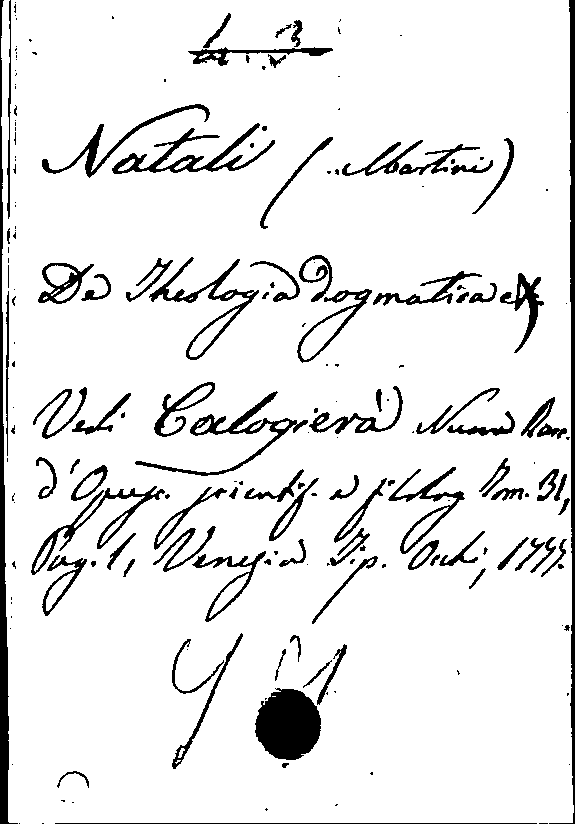 Natali ( Martini )
De Theologia dogmatica
Vedi Calogierà Nuova Racc.
d'Opusc. scientif. e filolog Tom. 31,
Pag. 1, Venezia Tip. Occhi, 1777.